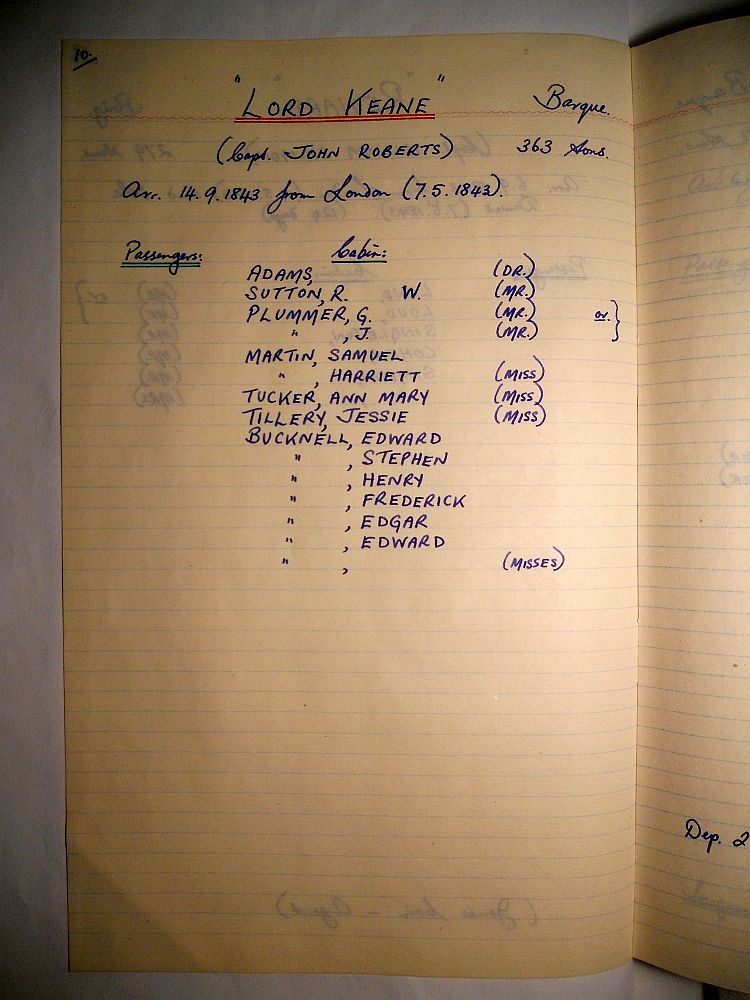 10.
"LORD KEANE" Barque.
(Capt. JOHN ROBERTS) 363 tons.
Arr. 14.9.1843 from London (7.5.1843).
Passengers: Cabin:
ADAMS, (DR.)
SUTTON, R. W. (MR.)
PLUMMER, G. (MR.) or. }
" , J. (MR.)
MARTIN, SAMUEL
" , HARRIETT (MISS)
TUCKER, ANN MARY (MISS)
TILLERY, JESSIE (MISS)
BUCKNELL, EDWARD
" , STEPHEN
" , HENRY
" , FREDERICK
" , EDGAR
" , EDWARD
" , (MISSES)
Dep. 2